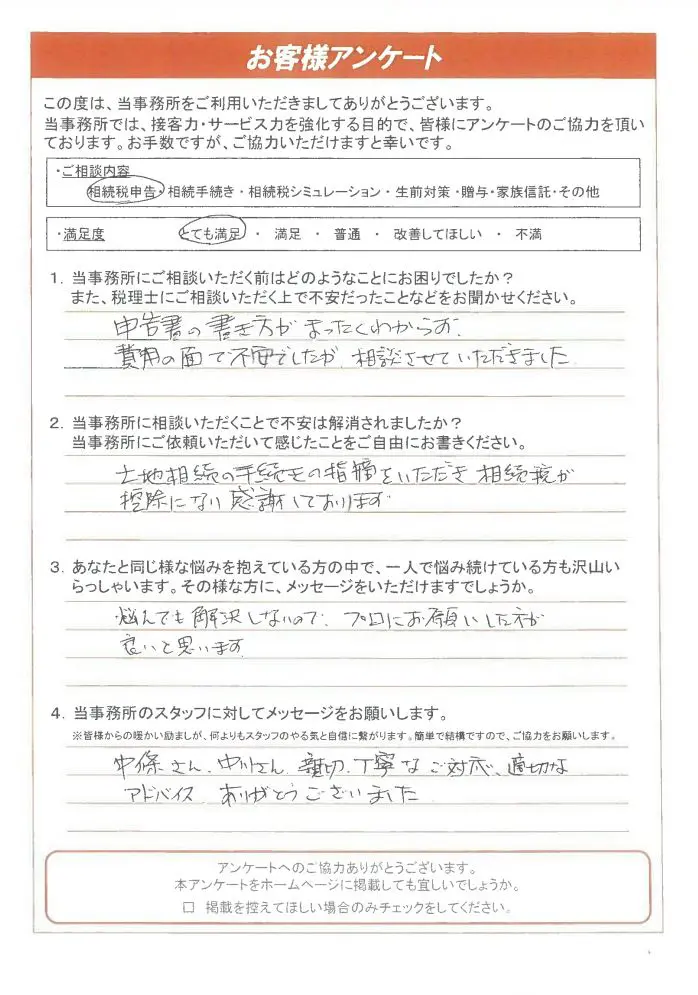 お客様アンケート
この度は、当事務所をご利用いただきましてありがとうございます。
当事務所では、接客力・サービス力を強化する目的で、皆様にアンケートのご協力を頂い
ております。お手数ですが、ご協力いただけますと幸いです。
・ご相談内容
相続税申告・相続手続き・相続税シミュレーション・生前対策・贈与・家族信託・その他
・満足度 とても満足 ・ 満足 ・ 普通 ・ 改善してほしい ・ 不満
1．当事務所にご相談いただく前はどのようなことにお困りでしたか？
また、税理士にご相談いただく上で不安だったことなどをお聞かせください。
申告書の書き方がまったくわからず、
費用の面で不安でしたが、相談させていただきました
2．当事務所に相談いただくことで不安は解消されましたか？
当事務所にご依頼いただいて感じたことをご自由にお書きください。
土地相続の手続きの指摘をいただき 相続税が
控除になり感謝しております
3．あなたと同じ様な悩みを抱えている方の中で、一人で悩み続けている方も沢山い
らっしゃいます。その様な方に、メッセージをいただけますでしょうか。
悩んでも解決しないので、プロにお願いした方が
良いと思います
4．当事務所のスタッフに対してメッセージをお願いします。
※皆様からの暖かい励ましが、何よりもスタッフのやる気と自信に繋がります。簡単で結構ですので、ご協力をお願いします。
中條さん、中川さん、親切、丁寧なご対応、適切な
アドバイス ありがとうございました
アンケートへのご協力ありがとうございます。
本アンケートをホームページに掲載しても宜しいでしょうか。
□ 掲載を控えてほしい場合のみチェックをしてください。